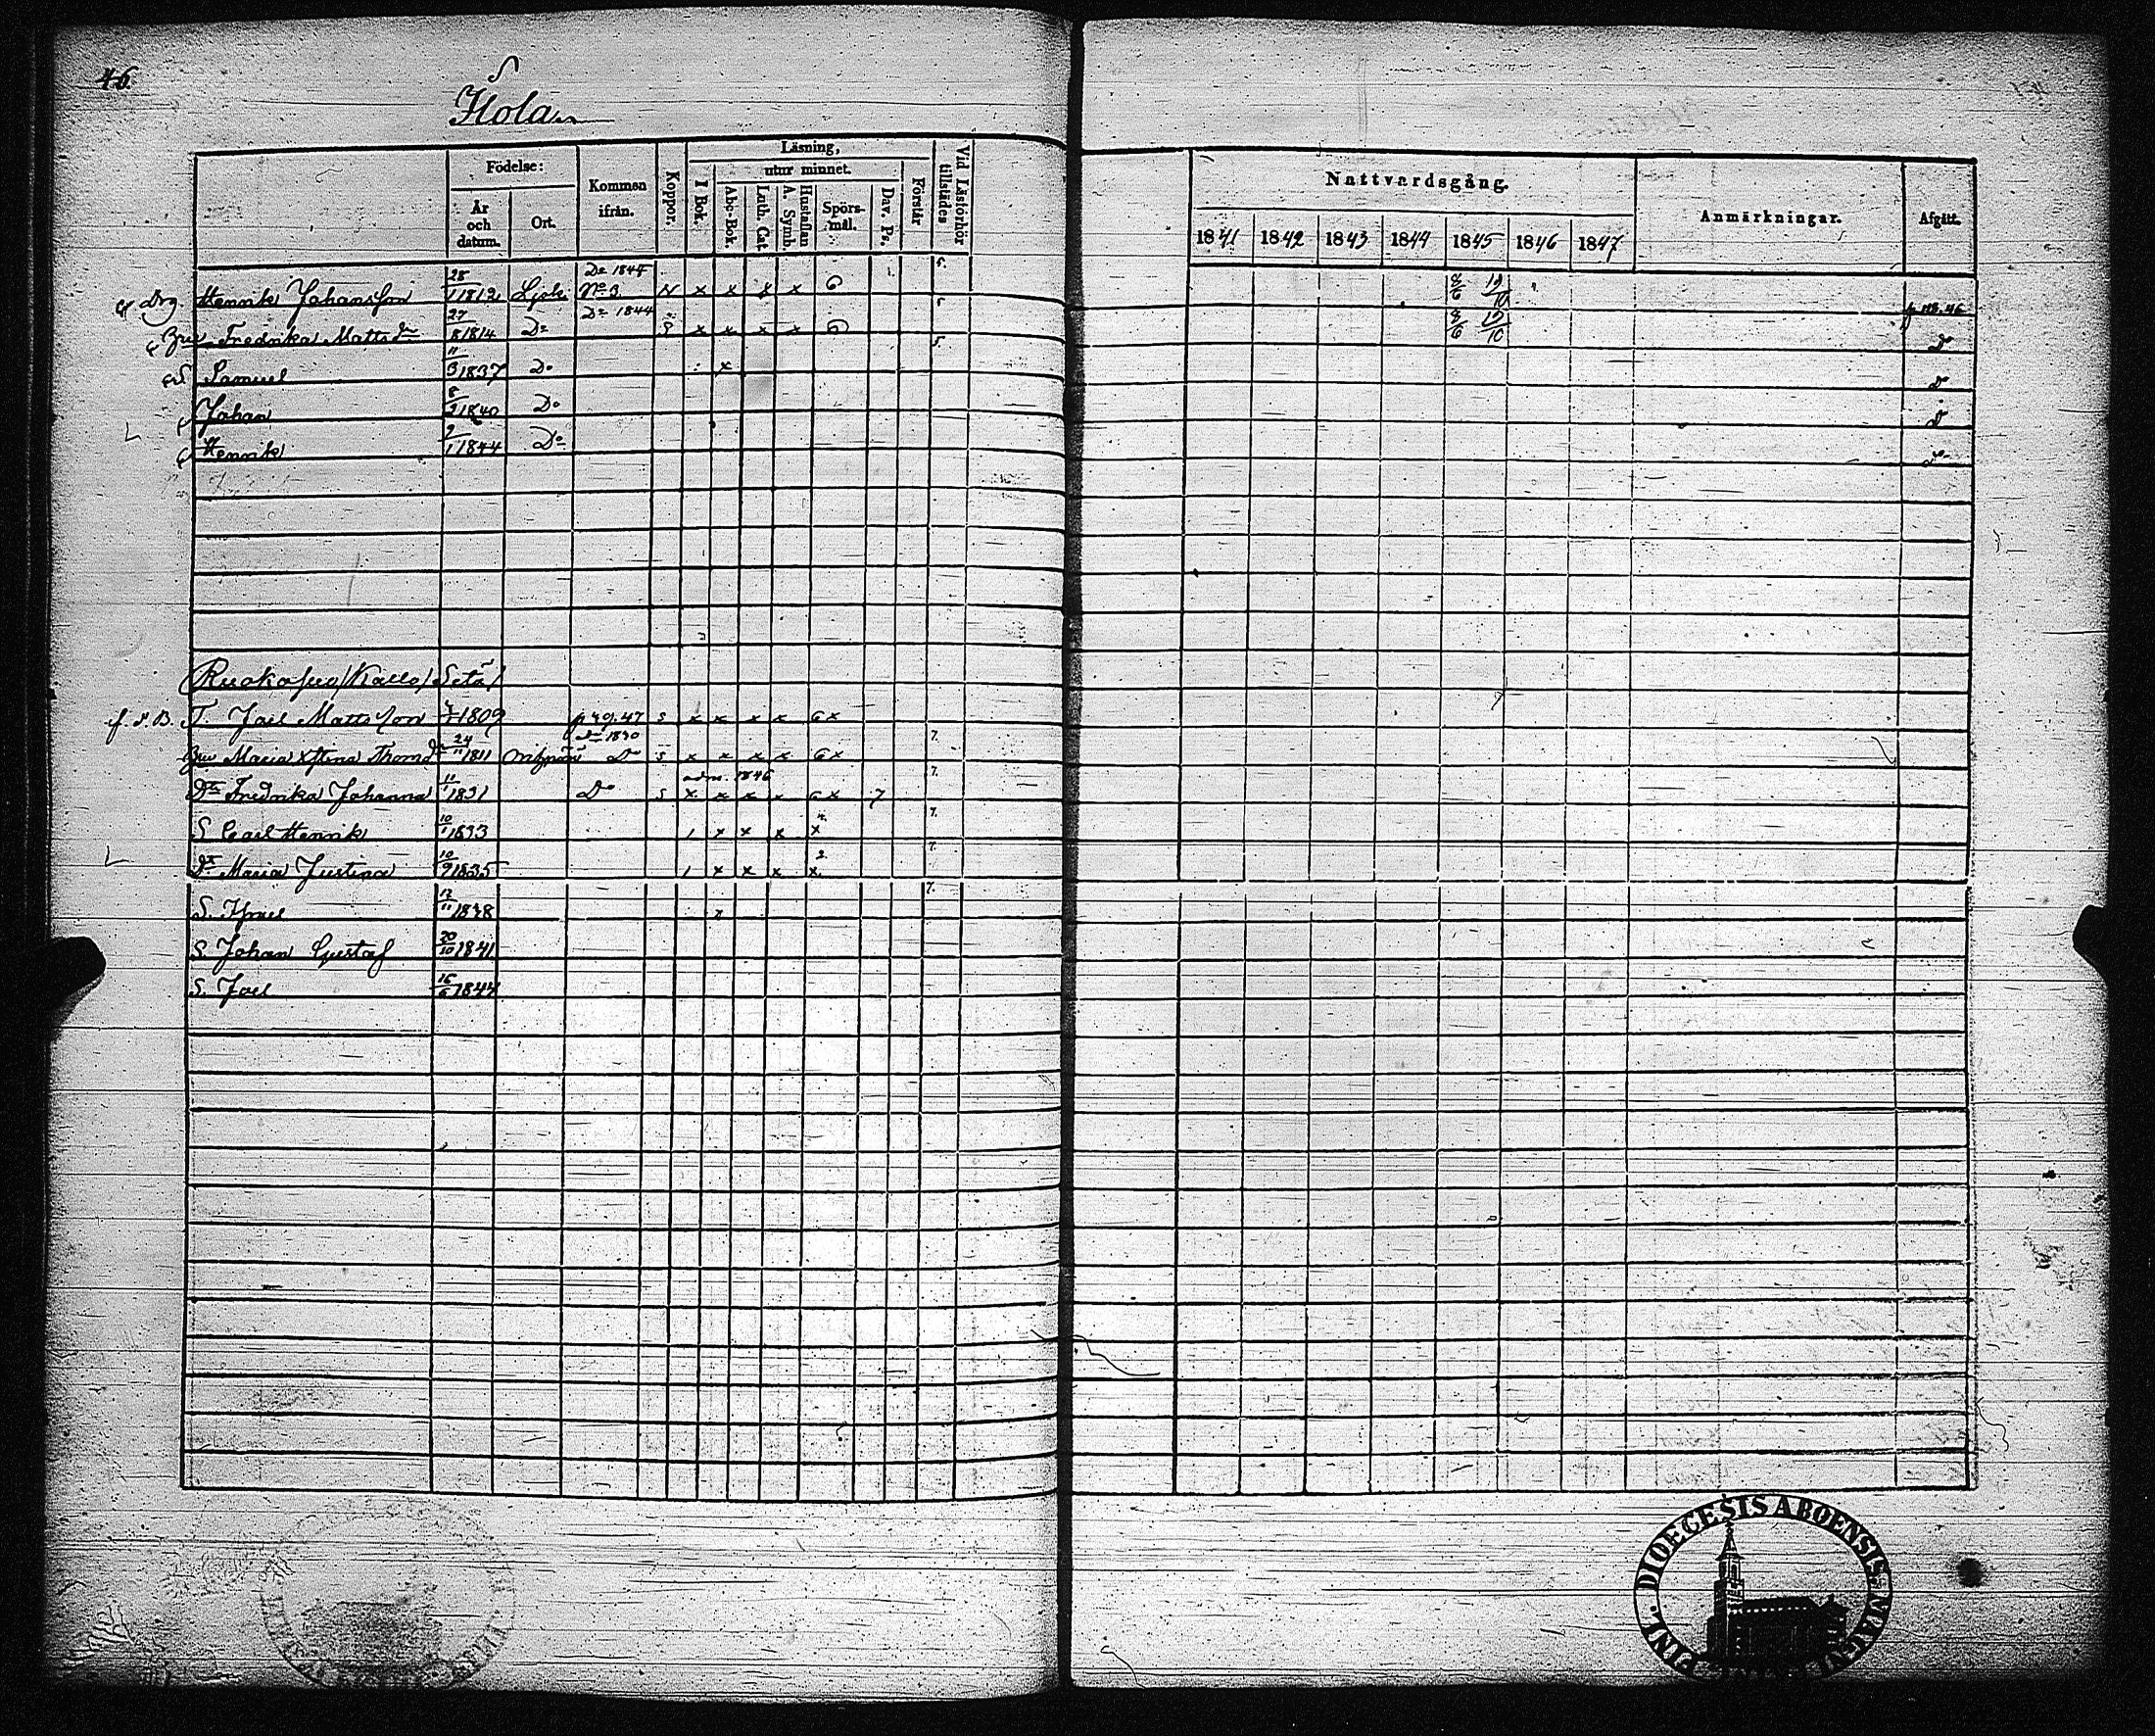 46.
Hola
Födelse: Kommen ifrån. Koppor. Läsning, Vid Läsförhör tillstädes
År och datum. Ort. I Bok. utur minnet. Förstår
Abc-Bok. Luth. Cat. Hustaflan A. Symb. Spörs-mål. Dav. Ps.
Nattvardsgång. Anmärkningar. Afgått.
1841 1842 1843 1844 1845 1846 1847
Do 1845 5.
Drg. Henrik Johansson 28/1 1812 No 3. x x x x 6 8/6 19/10
Do 1844
Fredrika Mattsdr 27/8 1814 Do x x x x 6 8/6 19/10
5.
S Samuel 11/3 1837 Do x Do
Johan 1840 Do Do
Henrik 1844 Do Do
T. Joel Mattsson 1809 p 49. 47 s x x x x 6 x
Do 1830 7.
Maria Stina Thomdr 24/11 1811 Do s x x x x 6 x
adm. 1846 7.
Dtr Fredrika Johanna 11/1 1831 Do s x x x x 6 x 7
S Carl Henrik 10/1 1833 1 x x x x 7.
Dr Maria Justina 10/9 1835 1 x x x x 2 7.
S. Israel 12/11 1838 x 7.
S. Johan Gustaf 20/10 1841
S. Joel 16/6 1844
DIOECESIS ABOENSIS. MAGNI